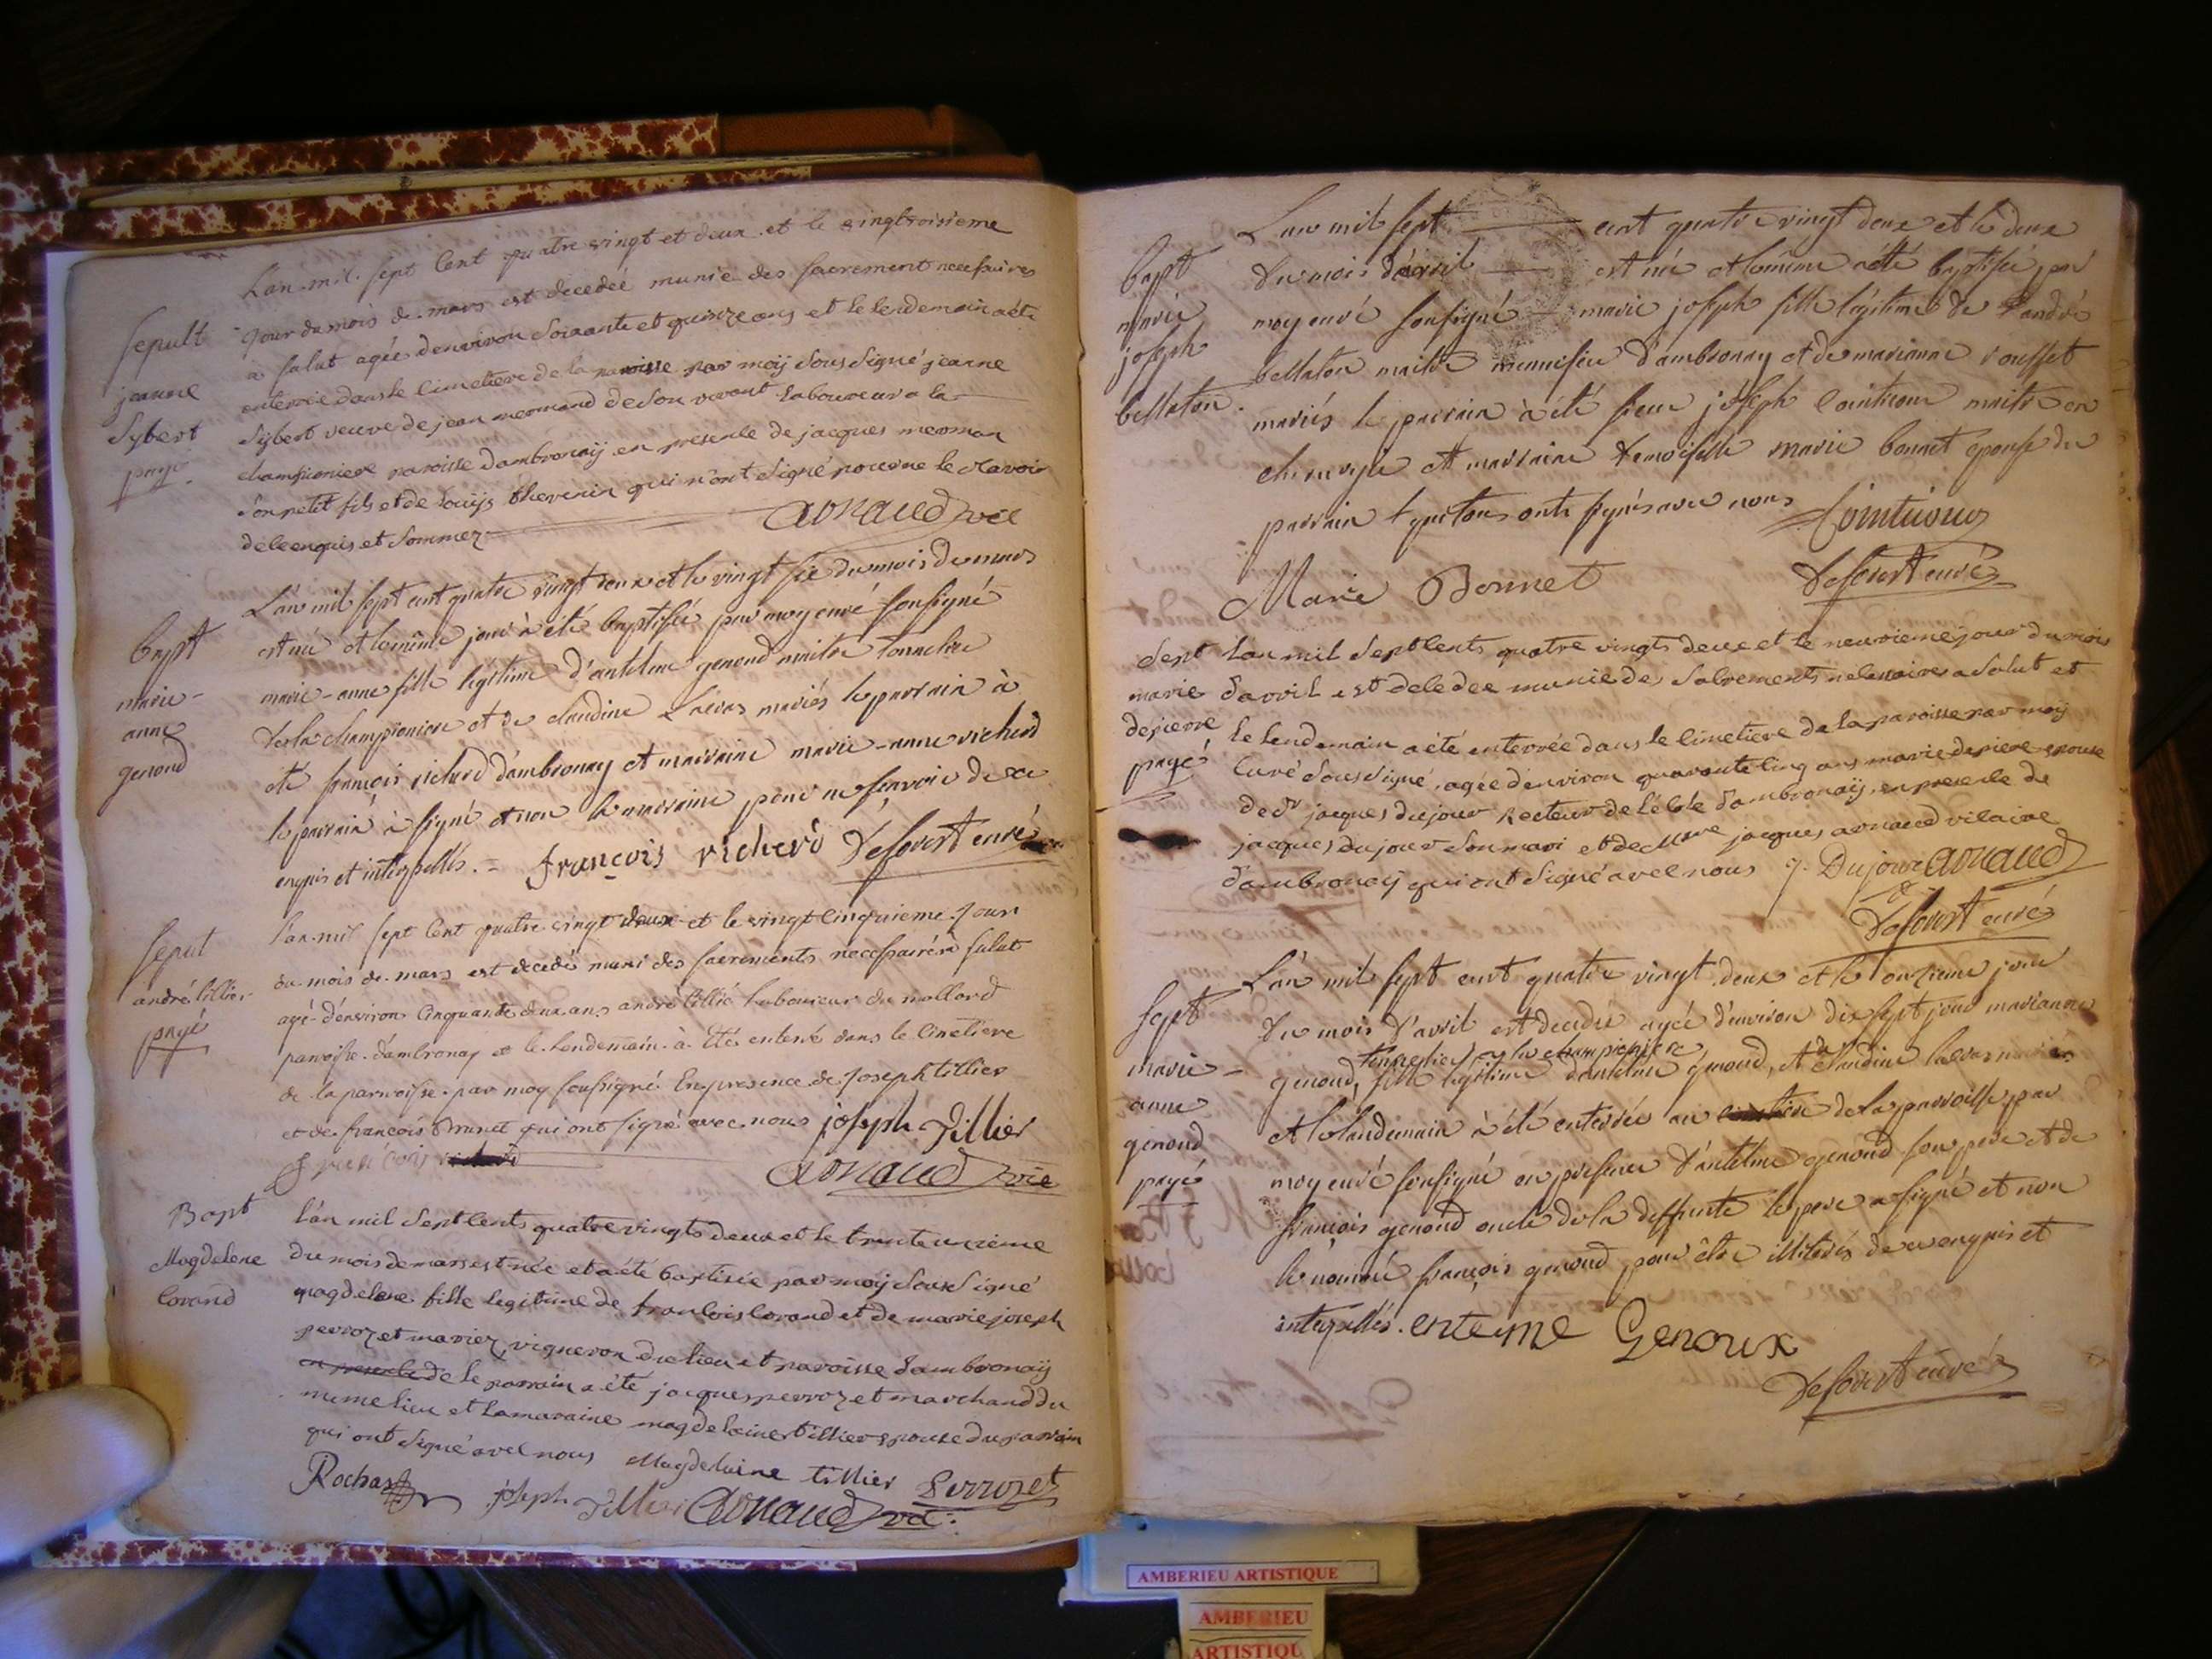 L'an mil sept cent quatre vingt et deux et le vingtroisieme
Sepult
jeanne
Sybert
payé
jour du mois de mars est decedeé munie des sacrement necessaires
a salut agée denviron soixante et quinze ans et le lendemain a été
enterrée dans le cimetiere de la paroisse par moÿ sous signé jeanne
Sijbert veuve de jean mermand de son vivant laboureur a la
championiere paroisse d'ambronaÿ en presence de jacques merman
son petit fils et de louijs thevenin qui n'ont signé pour ne le sçavoir
de ce enquis et sommez
arnaud vic
Bapt
marie-
anne
genoud
L'an mil sept cent quatre vingt deux et le vingt six du mois de mars
est née et le même jour à été baptisée par moy curé soussigné
marie-anne fille légitime d'antelme genoud maitre tonnelier
de la championiere et de claudine mariés le parrain à
été françois richerd d'ambronay et marraine marie-anne richerd
le parrain à signé et non la marraine pour ne sçavoir de ce
enquis et interpellés. = françois richerd Desfavert curé
Sepul
andré tillier
payé
l'an mil sept cent quatre vingt deux et le vingt cinquieme jour
du mois de mars est decedé muni des sacrements necessaires à salut
agé d'environ cinquante deux ans andré tillié laboureur du mollard
parroisse d'ambronay et le lendemain à été enterré dans le cimetiere
de la parroisse par moy soussigné en presence de joseph tillier
et de françois brunet qui ont signé avec nous joseph Tillier
françois
arnaud vic
Bapt
Magdelene
Corand
l'an mil sept cents quatre vingts deux et le trente unieme
du mois de mars est née et a été baptisée par moÿ sous signé
magdelene fille legitime de francois corand et de marie joseph
perroz et mariez vigneron du lieu et paroisse d'ambronaÿ
en presence de le parrain a été jacques perrozet marchand du
meme lieu et la maraine magdelaine tillier epouse du parrain
qui ont signé avec nous Magdelaine tillier Perrozet
Rochas joseph Tillier arnaud vic:
Bapt
marie
joseph
bellaton.
L'an mil sept cent quatre vingt deux et le deux
du mois d'avril est née et le même a été baptisée par
moy curé soussigné marie joseph fille légitime de andré
bellaton maitre menuisier d'ambronay et de marianne rousset
mariés le parrain à été sieur joseph cointicour maitre en
chirurgie et marraine demoiselle marie bonnet epouse du
parrain qui tous onts signés avec nous Cointicour
Marie Bonnet Desfavert curé
Sept
marie
depierre
payé
L'an mil sept cents quatre vingts deux et le neuvieme jour du mois
d'avril est decedee munie des sacrements necessaires a salut et
le lendemain a été enterrée dans le cimetiere de la paroisse par moÿ
curé sous signé, agée d'environ quarante cinq ans marie depierre epouse
de sr jacques dujour Recteur de l'école d'ambronaÿ, en presence de
jacques dujour son mari et de Mre jacques arnaud vicaire
d'ambronaÿ qui ont signé avec nous j. Dujour arnaud
Desfavert curé
Sept
marie-
anne
genoud
payé
L'an mil sept cent quatre vingt deux et le onzieme jour
du mois d'avril est decedée agée d'environ dix sept jour marianne
tonnelier de la championiere
genoud, fille legitime d'antelme genoud, et de claudine mariés
et le landemain à été enterrée au cimetiere de la parroisse par
moy curé soussigné en presence d'antelme genoud son pere et de
françois genoud oncle de la deffunte le pere a signé et non
le nommé françois genoud pour être illiteré de ce enquis et
interpellés. enteme Genoux
Desfavert curé
AMBERIEU ARTISTIQUE
AMBERIEU
ARTISTIQU